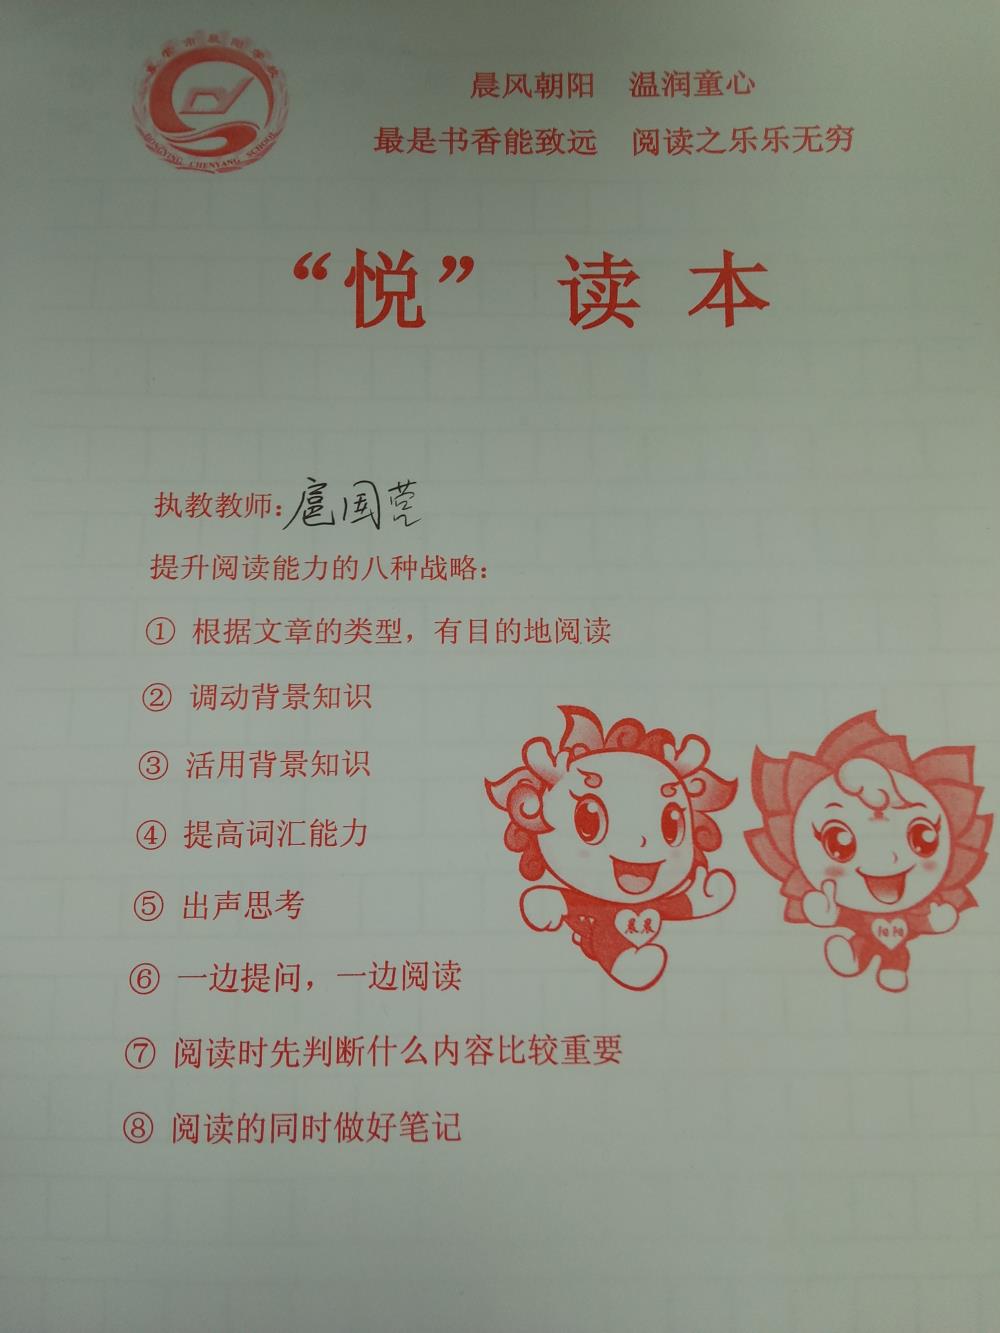 东营市晨阳学校
DONGYING CHENYANG SCHOOL
晨风朝阳 温润童心
最是书香能致远 阅读之乐乐无穷
“悦” 读 本
执教教师：扈国莹
提升阅读能力的八种战略：
① 根据文章的类型，有目的地阅读
② 调动背景知识
③ 活用背景知识
④ 提高词汇能力
⑤ 出声思考
⑥ 一边提问，一边阅读
⑦ 阅读时先判断什么内容比较重要
⑧ 阅读的同时做好笔记
晨晨
阳阳